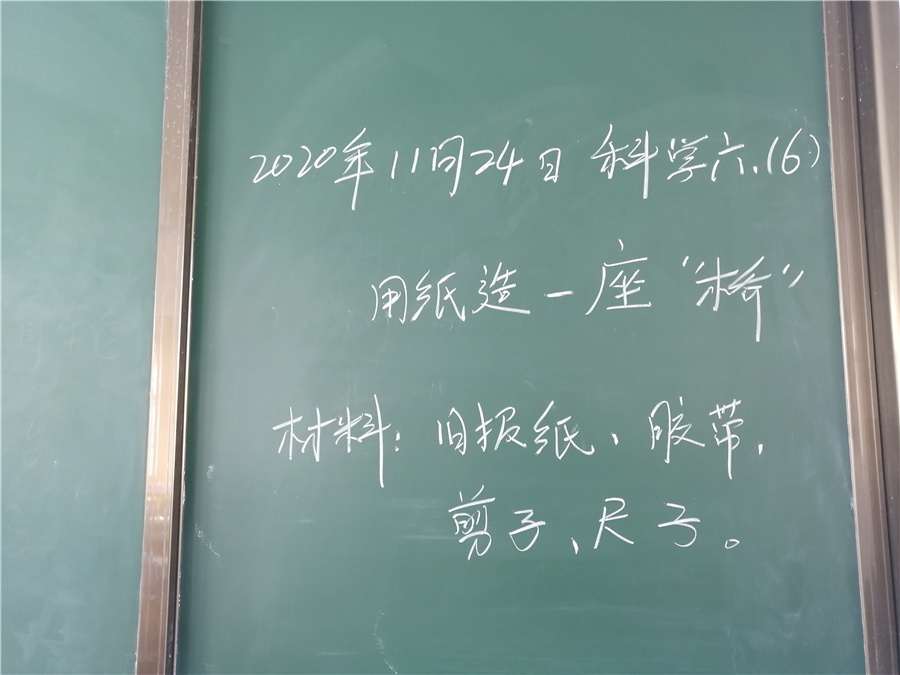 2020年11月24日 科学六.(6)
用纸造一座“桥”
材料：旧报纸、胶带，
剪子、尺子。